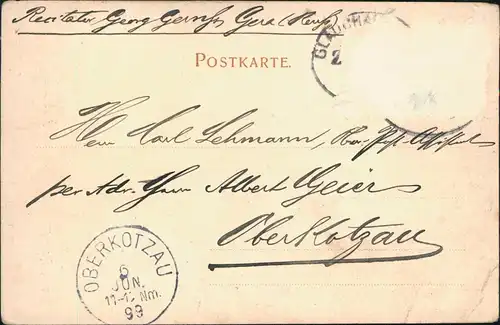 Recitator Georg Gernh, Gera (Reuß)
POSTKARTE.
GLAUCHA
2
Herrn Carl Lehmann,
per Adr. Herrn Albert Geier
Oberkotzau
OBERKOTZAU
6
JUN.
11-12 Nm.
99